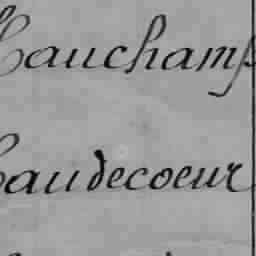 Cauchamp
Caudecoeur